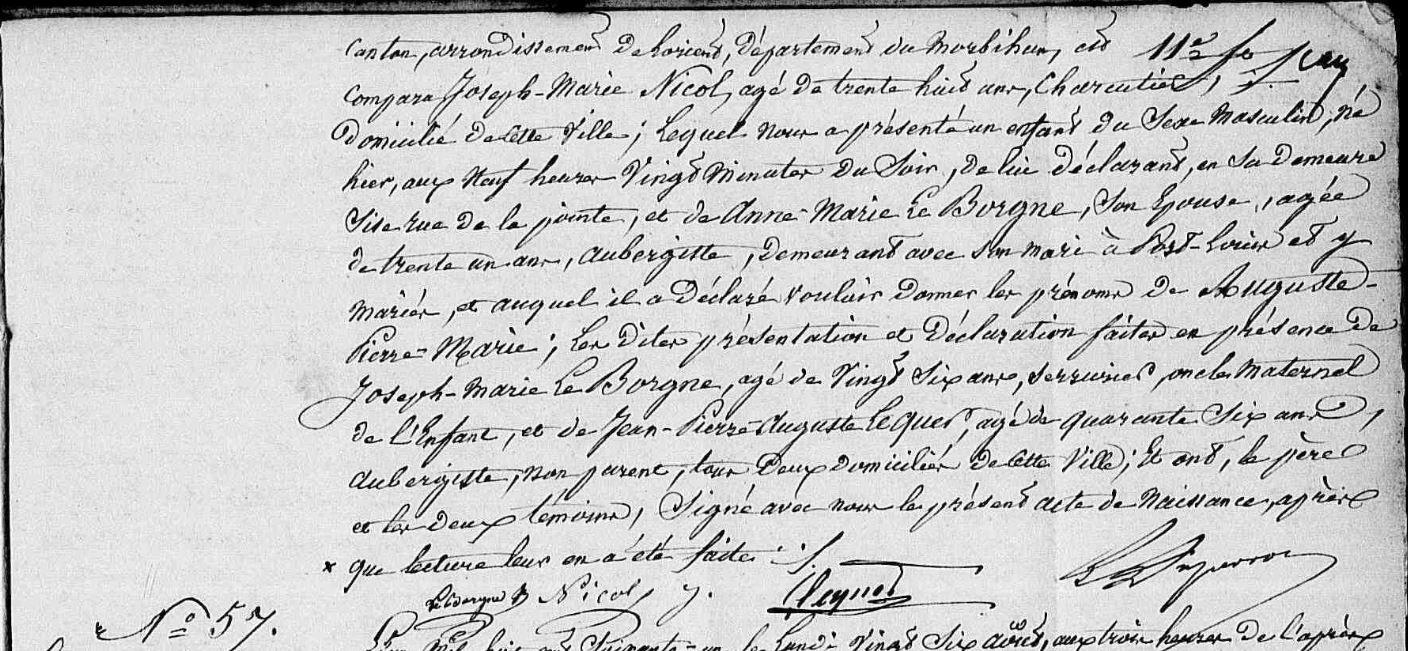 Canton, arrondissement de Lorient, département du Morbihan, est
comparu Joseph-Marie Nicol, agé de trente huit ans, Charcutier,
domicilié de cette Ville; Lequel nous a présenté un enfant du Sexe Masculin, né
hier, aux Neuf heures Vingt Minutes du Soir, de lui Déclarant, en sa Demeure
Sise rue de la pointe, et de Anne-Marie Le Borgne, Son Epouse, agée
de trente un ans, Aubergiste, Demeurant avec son mari à Port-Louis et y
Mariés, et auquel il a Déclaré vouloir Donner les prénoms de Auguste-
Pierre-Marie; Les Dites présentation et Déclaration faites en présence de
Joseph-Marie Le Borgne, agé de Vingt Six ans, serrurier, oncle Maternel
de l'Enfant, et de Jean-Pierre-Auguste Le quer, agé de quarante Six ans,
Aubergiste, non parent, tous Deux domiciliés de cette Ville; Et ont, le père
et les deux témoins, Signé avec nous le présent acte de Naissance, après
x que lecture leur en a été faite ./.
Le Borgne Nicol J.
N° 57.
L'an Mil huit cent Soixante-un, le Lundi Vingt Six août, aux trois heures de l'après